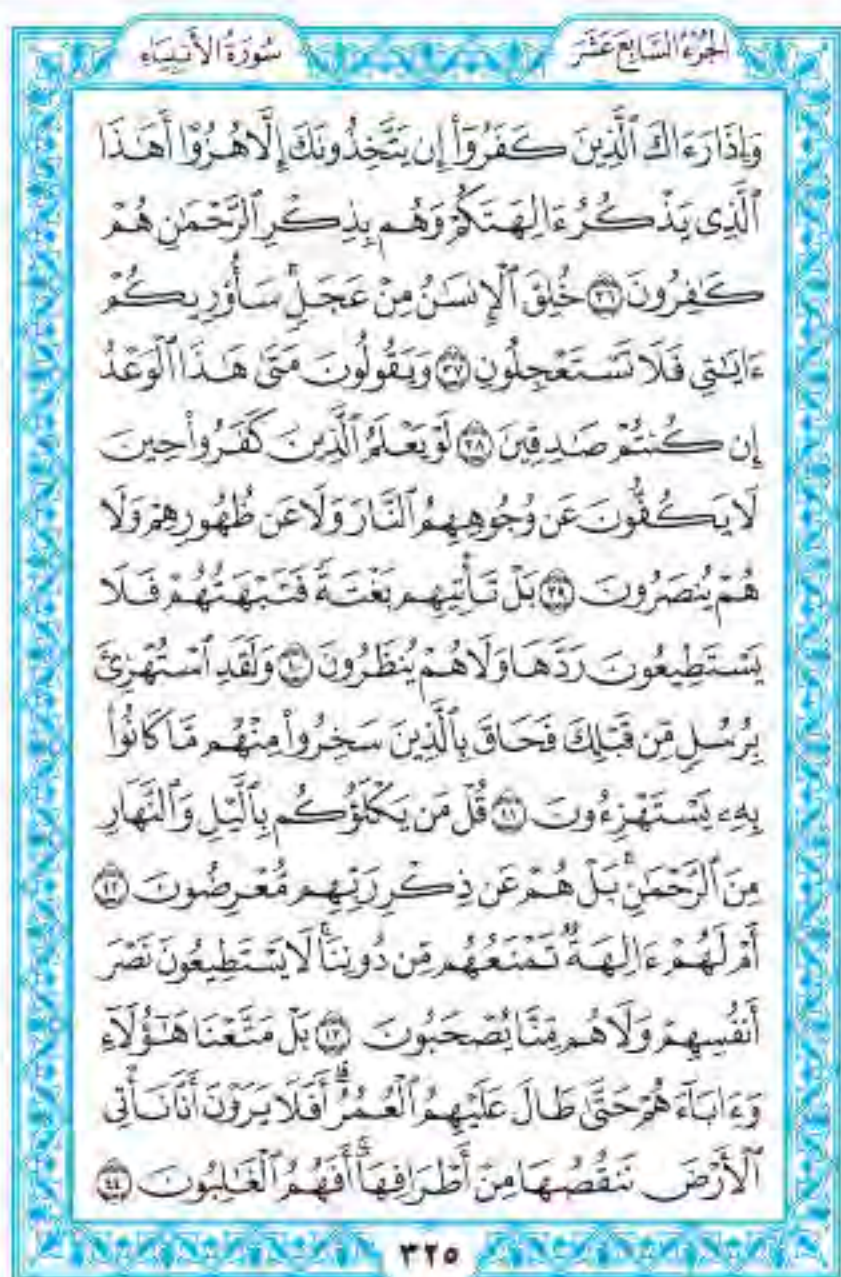 الجزء السابع عشر
سورة الأنبياء
وَإِذَا رَءَاكَ ٱلَّذِينَ كَفَرُوٓا۟ إِن يَتَّخِذُونَكَ إِلَّا هُزُوًا أَهَٰذَا
ٱلَّذِى يَذْكُرُ ءَالِهَتَكُمْ وَهُم بِذِكْرِ ٱلرَّحْمَٰنِ هُمْ
كَٰفِرُونَ ٣٦ خُلِقَ ٱلْإِنسَٰنُ مِنْ عَجَلٍ ۚ سَأُو۟رِيكُمْ
ءَايَٰتِى فَلَا تَسْتَعْجِلُونِ ٣٧ وَيَقُولُونَ مَتَىٰ هَٰذَا ٱلْوَعْدُ
إِن كُنتُمْ صَٰدِقِينَ ٣٨ لَوْ يَعْلَمُ ٱلَّذِينَ كَفَرُوا۟ حِينَ
لَا يَكُفُّونَ عَن وُجُوهِهِمُ ٱلنَّارَ وَلَا عَن ظُهُورِهِمْ وَلَا
هُمْ يُنصَرُونَ ٣٩ بَلْ تَأْتِيهِم بَغْتَةً فَتَبْهَتُهُمْ فَلَا
يَسْتَطِيعُونَ رَدَّهَا وَلَا هُمْ يُنظَرُونَ ٤٠ وَلَقَدِ ٱسْتُهْزِئَ
بِرُسُلٍ مِّن قَبْلِكَ فَحَاقَ بِٱلَّذِينَ سَخِرُوا۟ مِنْهُم مَّا كَانُوا۟
بِهِۦ يَسْتَهْزِءُونَ ٤١ قُلْ مَن يَكْلَؤُكُم بِٱلَّيْلِ وَٱلنَّهَارِ
مِنَ ٱلرَّحْمَٰنِ ۗ بَلْ هُمْ عَن ذِكْرِ رَبِّهِم مُّعْرِضُونَ ٤٢
أَمْ لَهُمْ ءَالِهَةٌ تَمْنَعُهُم مِّن دُونِنَا ۚ لَا يَسْتَطِيعُونَ نَصْرَ
أَنفُسِهِمْ وَلَا هُم مِّنَّا يُصْحَبُونَ ٤٣ بَلْ مَتَّعْنَا هَٰٓؤُلَآءِ
وَءَابَآءَهُمْ حَتَّىٰ طَالَ عَلَيْهِمُ ٱلْعُمُرُ ۗ أَفَلَا يَرَوْنَ أَنَّا نَأْتِى
ٱلْأَرْضَ نَنقُصُهَا مِنْ أَطْرَافِهَآ ۚ أَفَهُمُ ٱلْغَٰلِبُونَ ٤٤
٣٢٥